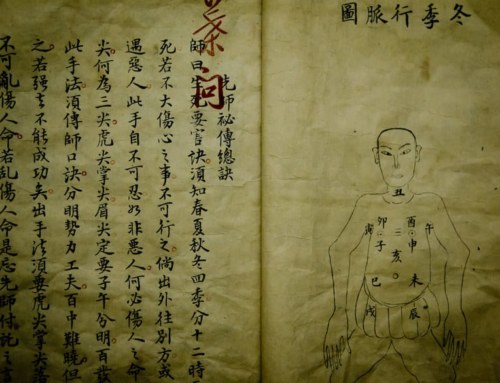 冬季行脈圖
丑
午
酉
申
卯
子
寅
三
亥
未
巳
辰
戌
葉問
先師祕傳總訣
師曰要官訣須知春夏秋冬四季分十二時
死若不大傷心之事不可行之倘出外往別方或
遇惡人此手自不可忍如非惡人何必傷人之命
尖何為三尖虎尖掌尖眉尖定要子午分明百發
此手法須傳師口訣分明勢力工夫百中難曉但
之若強言不能成功矣出手法須要虎尖掌尖落
不可亂傷人命若亂傷人命是忘先師付託之言